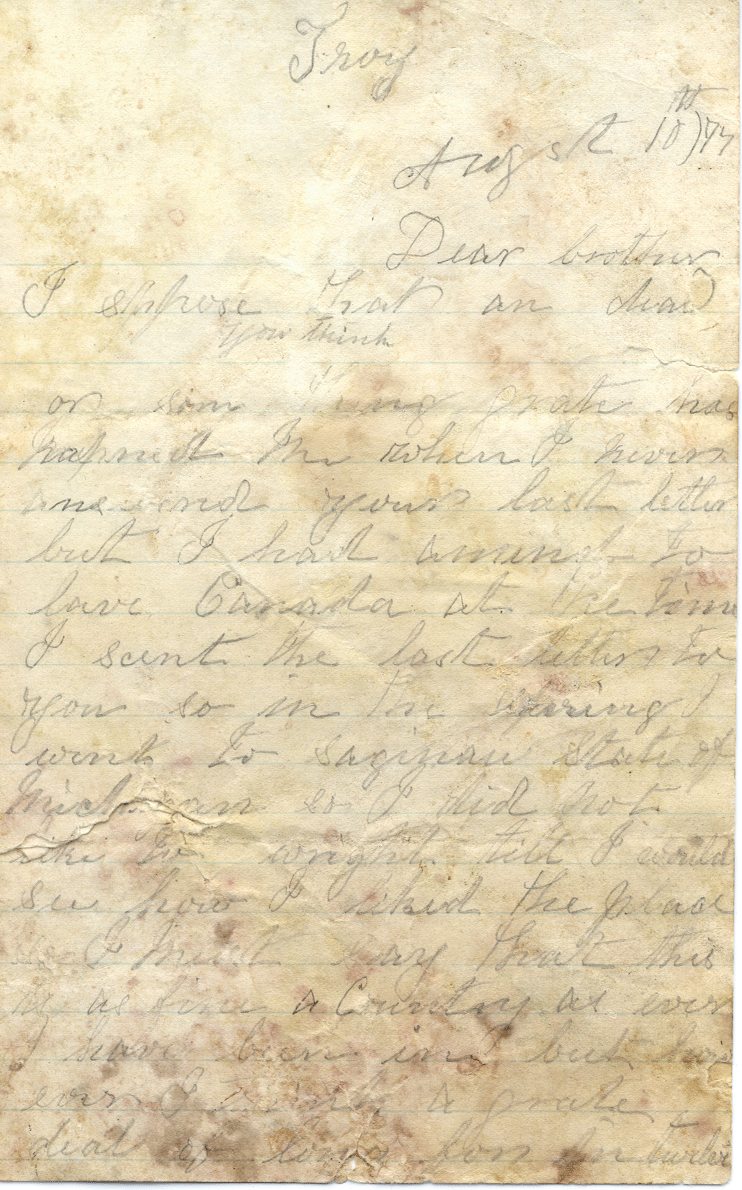 Troy
Augst 10th)77
Dear brother
I sppose that an dead
you think
or som thing grate has
hapned Me when I never
answerd your last letter
but I had a mind to
lave Canada at the time
I scent the last letter to
you so in the spring I
went to saginau State of
Michigan so I did not
like to wright till I would
see how I liked the place
so I Must say that this
is as fine a Country as ever
I have been in but how
ever I a grate
deal of in twelve